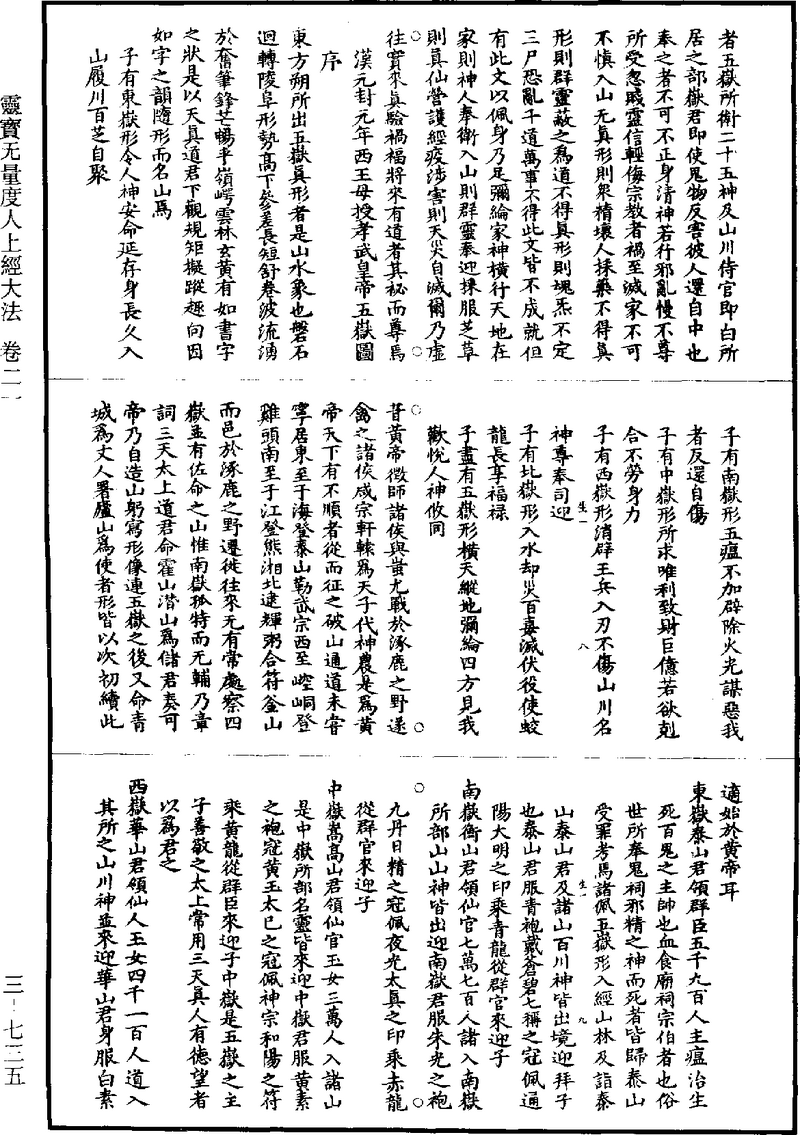 靈寶无量度人上經大法 卷二一
三-七二五
者五嶽所衛二十五神及山川侍官即白所
居之部嶽君即使鬼物反害彼人還自中也
奉之者不可不正身清神若行邪亂慢不尊
所受忽賤靈信輕侮宗教者禍至滅家不可
不慎入山无真形則衆精壞人採藥不得真
形則群靈蔽之為道不得真形則塊炁不定
三尸恐亂千道萬事不得此文皆不成就但
有此文以佩身乃足彌綸家神橫行天地在
家則神人奉衛入山則群靈奉迎採服芝草
則真仙營護經疫涉害則天災自滅爾乃虛
往實來真驗禍福將來有道者其祕而尊焉
漢元封元年西王母授孝武皇帝五嶽圖
序
東方朔所出五嶽真形者是山水象也盤石
迴轉陵阜形勢高下參差長短舒卷波流湧
於奮筆鋒芒暢乎嶺崿雲林玄黃有如書字
之狀是以天真道君下觀規矩擬蹤趣向因
如字之韻隨形而名山焉
子有東嶽形令人神安命延存身長久入
山履川百芝自聚
子有南嶽形五瘟不加辟除火光謀惡我
者反還自傷
子有中嶽形所求唯利致財巨億若欲剋
合不勞身力
子有西嶽形消辟王兵入刃不傷山川名
神尊奉司迎
生一 八
子有北嶽形入水却災百毒滅伏役使蛟
龍長享福祿
子盡有五嶽形橫天縱地彌綸四方見我
歡悅人神攸同
昔黃帝徵師諸侯與蚩尤戰於涿鹿之野遂
禽之諸侯咸宗軒轅為天子代神農是為黃
帝天下有不順者從而征之破山通道未嘗
寧居東至于海登泰山勒武宗西至崆峒登
雞頭南至于江登熊湘北逮輝粥合符釜山
而邑於涿鹿之野遷徙往來无有常處察四
嶽並有佐命之山惟南嶽孤特而无輔乃章
詞三天太上道君命霍山潛山為儲君奏可
帝乃自造山躬寫形像連五嶽之後又命青
城為丈人署廬山為使者形皆以次初續此
適始於黃帝耳
東嶽泰山君領群臣五千九百人主瘟治生
死百鬼之主帥也血食廟祠宗伯者也俗
世所奉鬼祠邪精之神而死者皆歸泰山
受罪考焉諸佩五嶽形入經山林及詣泰
山泰山君及諸山百川神皆出境迎拜子
生一 九
也泰山君服青袍戴蒼碧七稱之冠佩通
陽大明之印乘青龍從群官來迎子
南嶽衡山君領仙官七萬七百人諸入南嶽
所部山山神皆出迎南嶽君服朱光之袍
九丹日精之冠佩夜光太真之印乘赤龍
從群官來迎子
中嶽嵩高山君領仙官玉女三萬人入諸山
是中嶽所部名靈皆來迎中嶽君服黃素
之袍冠黃玉太巳之冠佩神宗和陽之符
乘黃龍從群臣來迎子中嶽是五嶽之主
子善敬之太上常用三天真人有德望者
以為君之
西嶽華山君領仙人玉女四千一百人道入
其所之山川神並來迎華山君身服白素